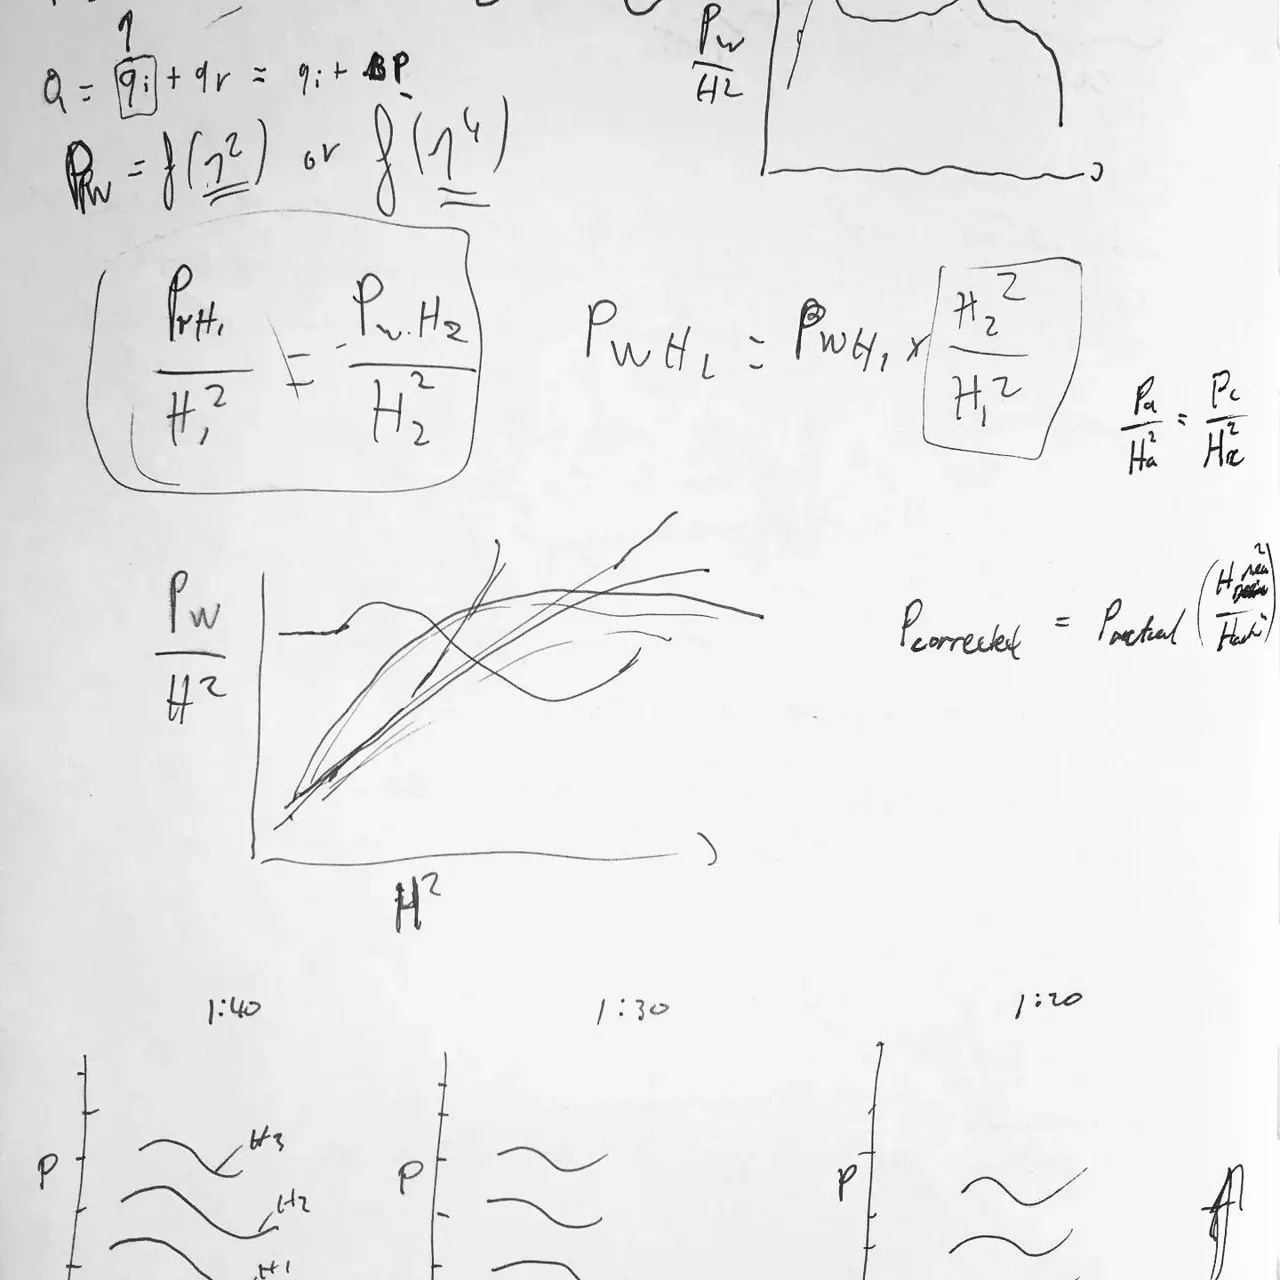 η
Q = qi + qr = qi + BP
Pw = f(η²) or f(η⁴)
Pw
H2
PwH₁ / H₁² = Pw.H₂ / H₂²
PWH₂ = PWH₁ × H₂² / H₁²
Pa / Ha² = Pc / Hx²
Pw
H²
Pcorrected = Pactual
H²
1:40
1:30
1:20
P
H3
H2
H1
P
P